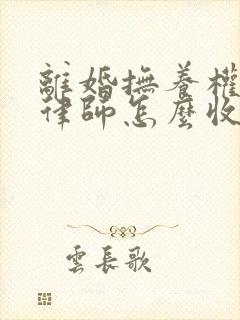 離婚撫養權
律師怎麼收
雲長歌